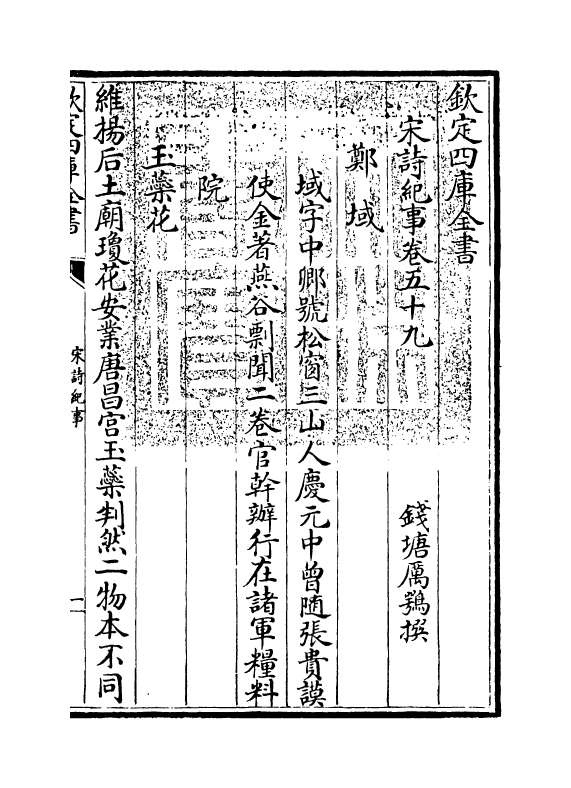 欽定四庫全書
宋詩紀事卷五十九
錢塘厲鶚撰
鄭域
域字中卿號松窗三山人慶元中曾随張貴謨
使金著燕谷剽聞二卷官幹辦行在諸軍糧料
院
玉蘂花
維揚后土廟瓊花安業唐昌宫玉蘂判然二物本不同
欽定四庫全書
宋詩紀事
一